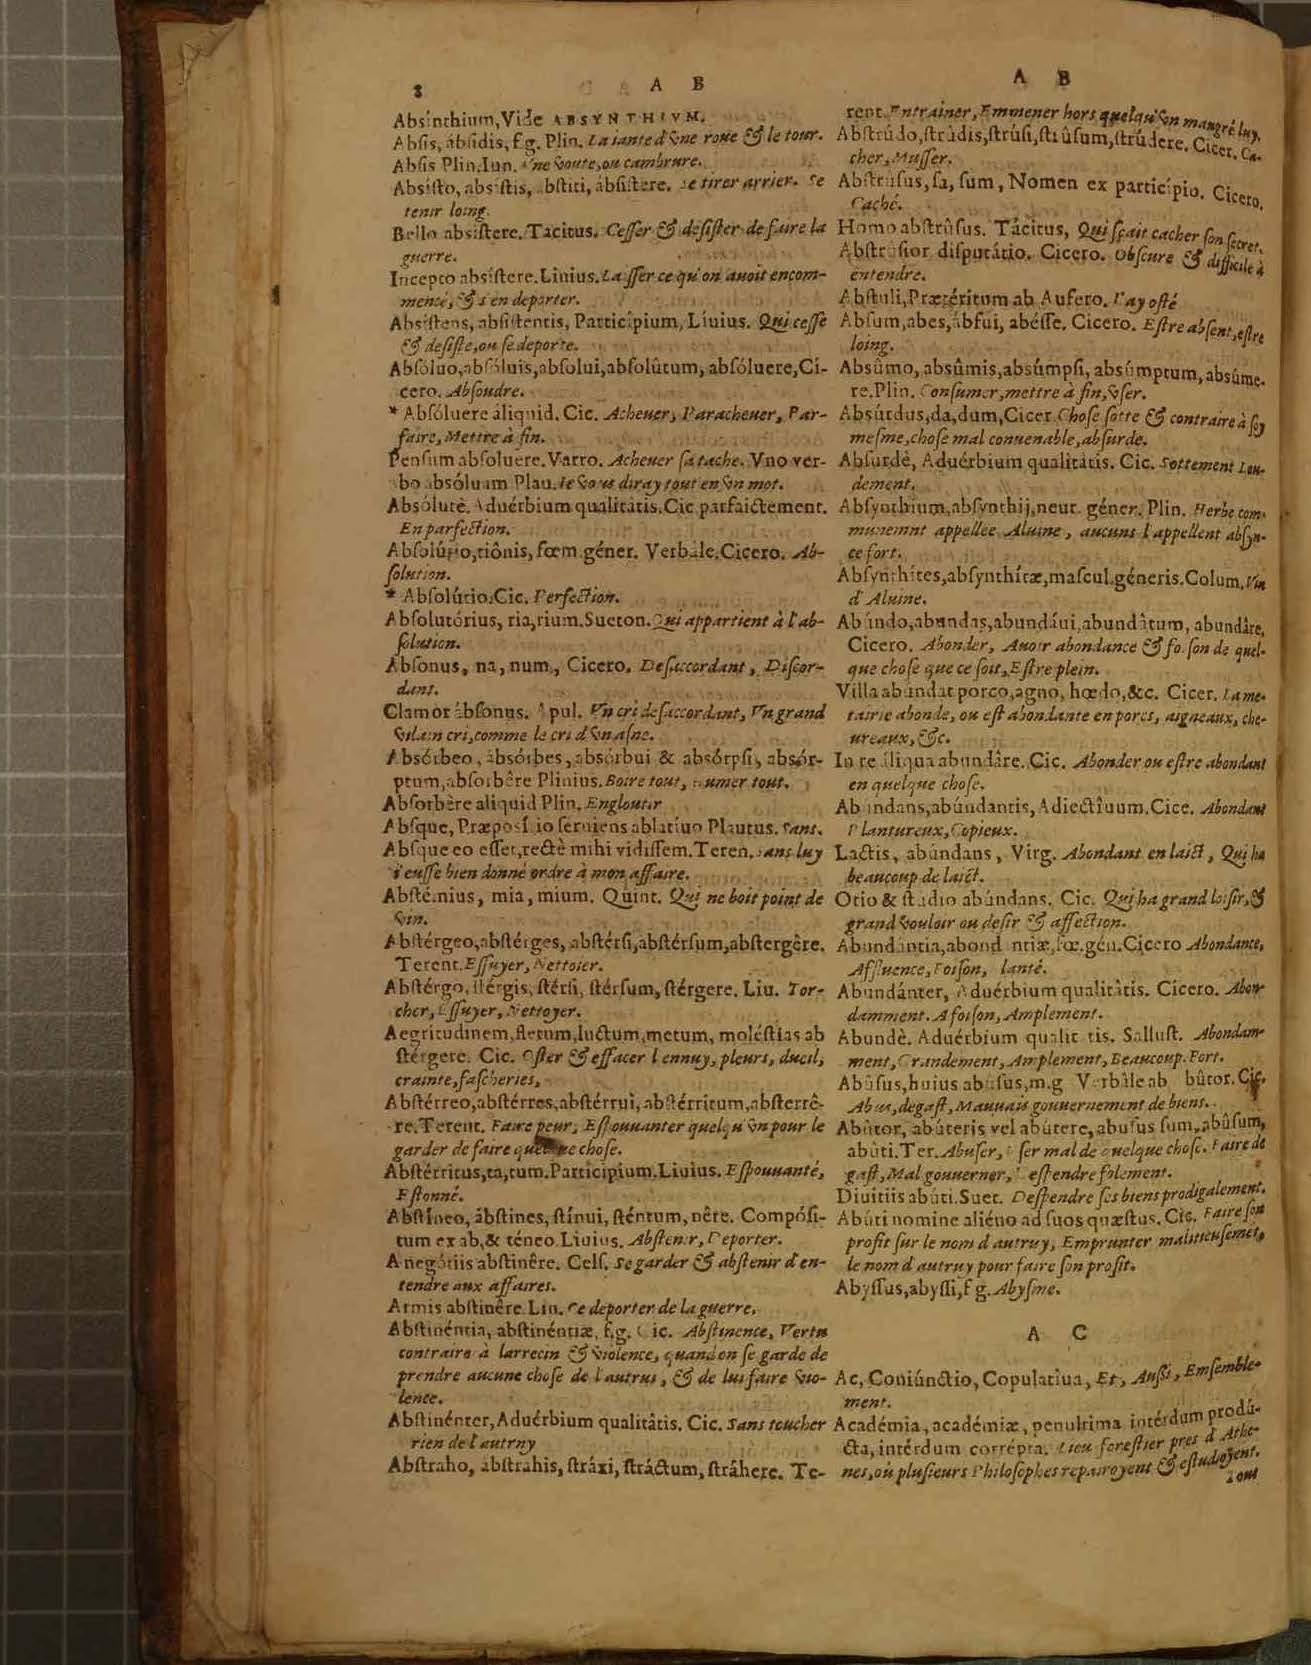 8
A B
Absinthium, Vide ABSYNTHIVM.
Absis, ábsidis, f.g. Plin. La iante d'vne roue & le tour.
Absis Plin. Iun. Vne voute, ou cambrure.
Absisto, absistis, abstiti, ábsistere. Se tirer arrier. Se
tenir loing.
Bello absistere. Tacitus. Cesser & desister de faire la
guerre.
Incepto absistere. Liuius. Laisser ce qu'on auoit encom-
mencé, & s'en deporter.
Absistens, absistentis, Participium, Liuius. Qui cesse
& desiste, ou se deporte.
Absoluo, absóluis, absolui, absolûtum, absóluere, Ci-
cero. Absoudre.
* Absóluere áliquid. Cic. Acheuer, Paracheuer, Par-
faire, Mettre à fin.
Pensum absoluere. Varro. Acheuer sa tache. Vno ver-
bo absóluam Plau. Ie vous diray tout en vn mot.
Absólutè. Aduérbium qualitâtis. Cic. parfaictement.
En parfection.
Absolútio, tiônis, fœm. géner. Verbale. Cicero. Ab-
solution.
* Absolútio. Cic. Perfection.
Absolutórius, ria, rium. Sueton. Qui appartient à l'ab-
solution.
Absonus, na, num, Cicero. Desaccordant, Discor-
dant.
Clamor ábsonus. Apul. Vn cri desaccordant, Vn grand
vilain cri, comme le cri d'vn asne.
Absórbeo, ábsórbes, absórbui & absórpsi, absór-
ptum, absorbêre Plinius. Boire tout, Humer tout.
Absorbère aliquid Plin. Engloutir
Absque, Præposi io seruiens ablatiuo Plautus. Sans.
Absque eo esset, rectè mihi vidissem. Teren. Sans luy
i'eusse bien donné ordre à mon affaire.
Absté.nius, mia, mium. Quint. Qui ne boit point de
vin.
Abstérgeo, abstérges, abstérsi, abstérsum, abstergêre.
Terent. Essuyer, Nettoier.
Abstérgo, stérgis, stérsi, stérsum, stérgere. Liu. Tor-
cher, Essuyer, Nettoyer.
Aegritudinem, fletum, luctum, metum, moléstias ab
stérgere. Cic. Oster & effacer l'ennuy, pleurs, dueil,
crainte, fascheries,
Abstérreo, abstérres, abstérrui, abstérritum, absterrê-
re. Terent. Faire peur, Espouuanter quelqu'vn pour le
garder de faire quelque chose.
Abstérritus, ta, tum. Participium. Liuius. Espouuanté,
Estonné.
Abstíneo, ábstines, stínui, sténtum, nêre. Compósi-
tum ex ab, & téneo. Liuius. Abstenir, Deporter.
A negótiis abstinêre. Cels. Se garder & abstenir d'en-
tendre aux affaires.
Armis abstinêre. Liu. Se deporter de la guerre.
Abstinéntia, abstinéntiæ, f.g. Cic. Abstinence, Vertu
contraire à larrecin & violence, quand on se garde de
prendre aucune chose de l'autrui, & de lui faire vio-
lence.
Abstinénter, Aduérbium qualitâtis. Cic. Sans toucher
rien de l'autruy
Abstraho, ábstrahis, stráxi, stráctum, stráhere. Te-
A B
rent. Entrainer, Emmener hors quelqu'vn maugré luy.
Abstrúdo, strúdis, strúsi, strûsum, strúdere. Cicer. Ca-
cher, Musser.
Abstrúsus, sa, sum, Nomen ex participio. Cicero.
Caché.
Homo abstrûsus. Tácitus, Qui sçait cacher son secret.
Abstrusior disputátio. Cicero. Obscure & difficile à
entendre.
Abstuli, Prætéritum ab Aufero. I'ay osté
Absum, abes, ábfui, abésse. Cicero. Estre absent, estre
loing.
Absûmo, absûmis, absúmpsi, absúmptum, absúme-
re. Plin. Consumer, mettre à fin, vser.
Absúrdus, da, dum, Cicer. Chose sotte & contraire à soy
mesme, chose mal conuenable, absurde.
Absurdè, Aduérbium qualitâtis. Cic. Sottement Lou-
dement.
Absynthium, absynthij, neut. géner. Plin. Herbe com-
munemnt appellee Aluine, aucuns l'appellent absyn-
ce fort.
Absynthítes, absynthítæ, mascul. géneris. Colum. Vin
d'Aluine.
Abúndo, abundas, abundáui, abundâtum, abundâre,
Cicero. Abonder, Auoir abondance & foison de quel-
que chose que ce soit, Estre plein.
Villa abúndat porco, agno, hœdo, &c. Cicer. La me-
tairie abonde, ou est abondante en porcs, aigneaux, che-
ureaux, &c.
In re áliqua abundâre. Cic. Abonder ou estre abondant
en quelque chose.
Abúndans, abúndantis, Adiectîuum. Cice. Abondant
Plantureux, Copieux.
Lactis, abúndans, Virg. Abondant en laict, Qui ha
beaucoup de laict.
Otio & studio abúndans. Cic. Qui ha grand loisir, &
grand vouloir ou desir & affection.
Abundántia, abond ntiæ, fœ. gén. Cicero Abondante,
Affluence, Foison, lanté.
Abundánter, Aduérbium qualitâtis. Cicero. Abon-
damment. A foison, Amplement.
Abundè. Aduérbium qualit tis. Sallust. Abondam-
ment, Grandement, Amplement, Beaucoup. Fort.
Abûsus, huius abúsus, m.g Verbâle ab bûtor. Cic.
Abus, degast, Mauuais gouuernement de biens.
Abûtor, abúteris vel abútere, abusus sum, abûsum,
abúti. Ter. Abuser, Vser mal de quelque chose. Faire de
gast, Mal gouuerner, Despendre folement.
Diuitiis abúti. Suet. Despendre ses biens prodigalement.
Abúti nomine aliéno ad suos quæstus. Cic. Faire son
profit sur le nom d'autruy, Emprunter malitieusemẽt,
le nom d'autruy pour faire son profit.
Abyssus, abyssi, f g. Abysme.
A C
Ac, Coniúnctio, Copulatiua, Et, Aussi, Emsemble-
ment.
Académia, académiæ, penultima intérdum prodú-
cta, intérdum corrépta. Lieu forestier pres d'Athe-
nes, où plusieurs Philosophes repairoyent & estudioyent.
Tout